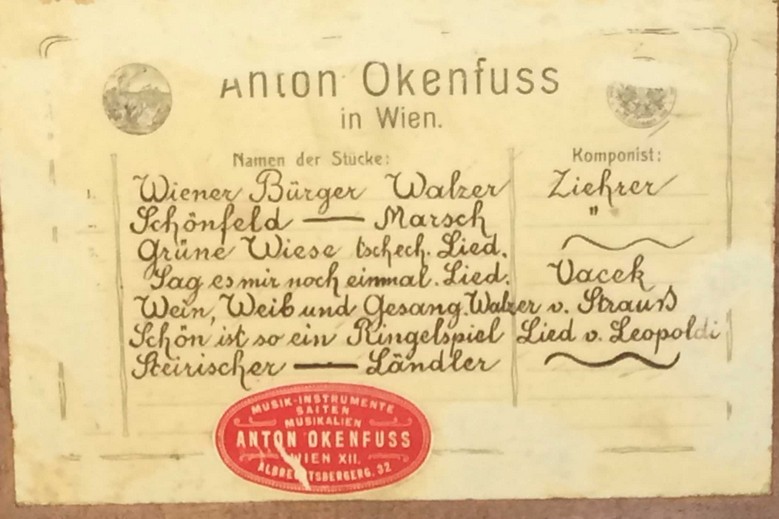 Anton Okenfuss
in Wien.
Namen der Stücke: Komponist:
1. Wiener Bürger Walzer Ziehrer
Schönfeld — Marsch "
Grüne Wiese tschech. Lied. ~
Sag es mir noch einmal. Lied. Vacek
Wein, Weib und Gesang. Walzer v. Strauß
Schön ist so ein Ringelspiel Lied v. Leopoldi
Steirischer — Ländler ~
MUSIK-INSTRUMENTE
SAITEN
MUSIKALIEN
ANTON OKENFUSS
WIEN XII.
ALBRECHTSBERGERG. 32